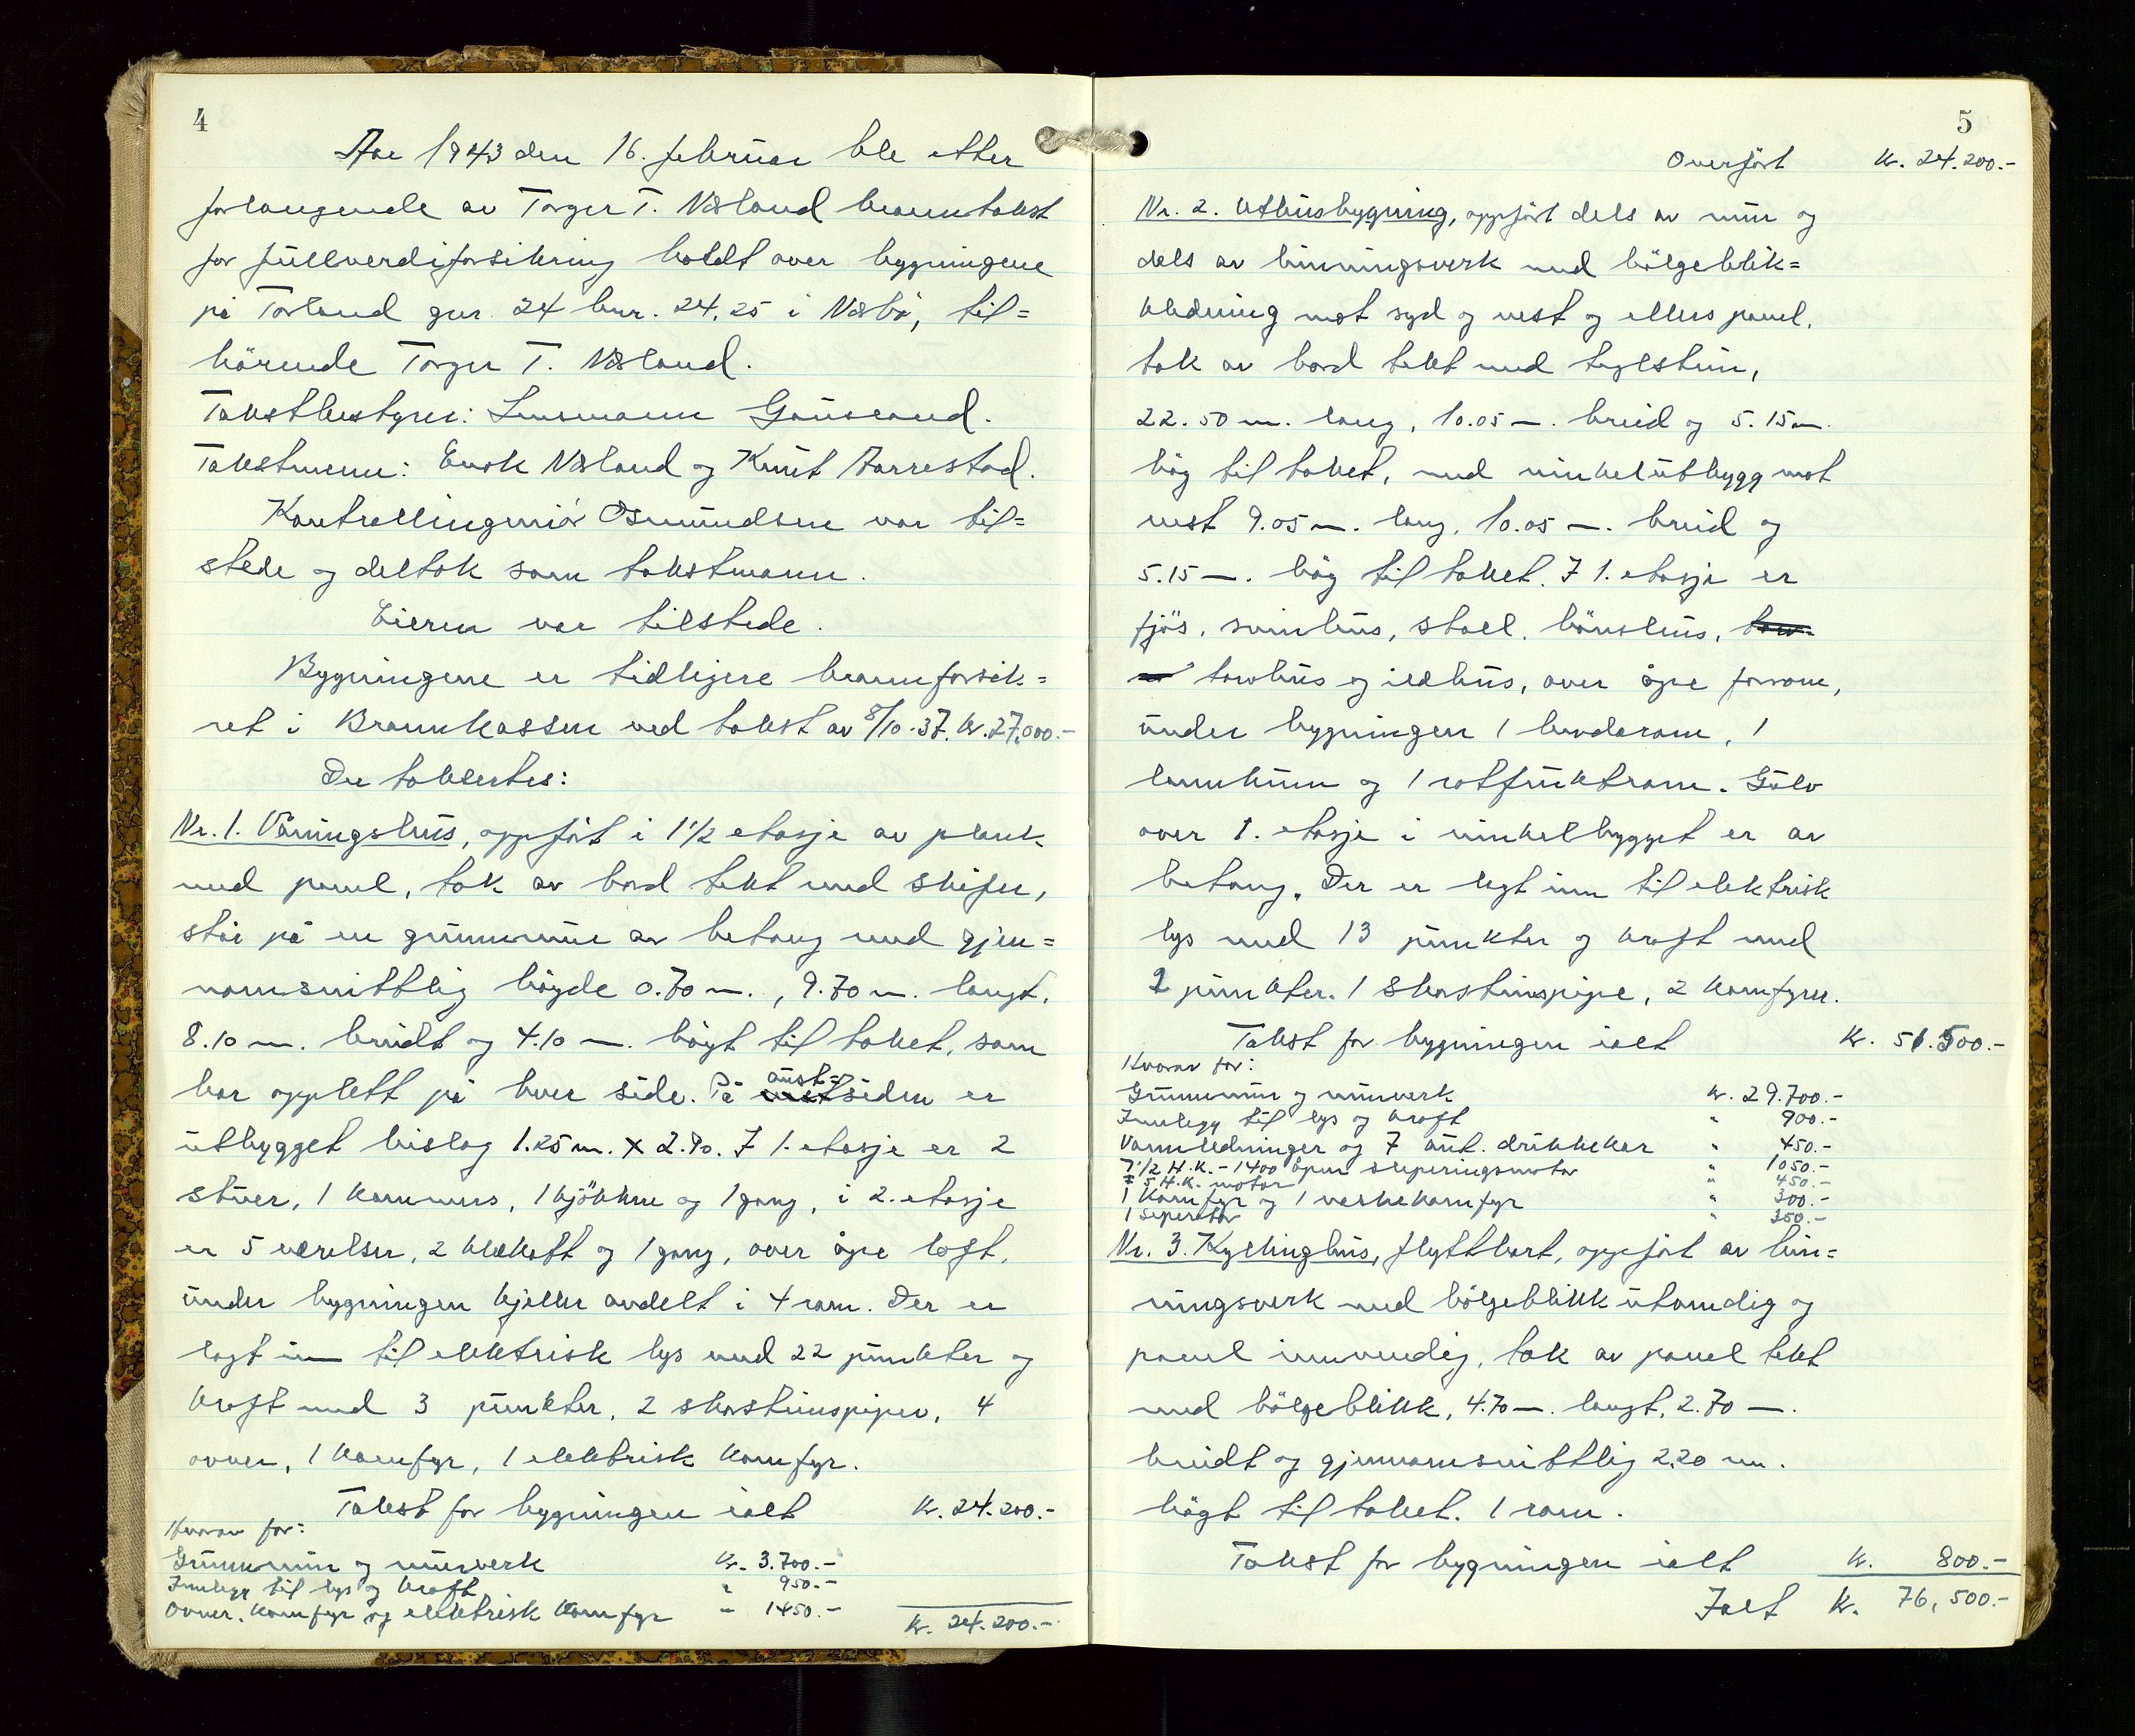 4
Aar 1943 den 16. februar ble etter
forlangende av Torger T. Næland branntakst
for fullverdiforsikring holdt over bygningene
på Torland gnr. 24 bnr. 24,25 i Nærbø, til=
hörende Torger T. Næland.
Takstbestyrer: Lensmann Gausland.
Takstmenn: Enok Næland og Knut Aarrestad.
Kontrollingeniör Osmundsen var til=
stede og deltok som takstmann.
Eieren var tilstede.
Bygningene er tidligere brannforsik=
ret i Brannkassen ved takst av 8/10.37. Kr. 27,000.-
Der taksertes:
Nr. 1. Våningshus, oppfört i 1 1/2 etasje av plank
med panel, tak av bord tekt med skifer,
står på en grunnmur av betong med gjen=
nomsnittlig höyde 0.70 m., 9.70 m. langt,
8.10 m. breidt og 4.10 m. högt til taket, som
har opplett på hver side. På aust=
siden er
utbygget bislag 1.25 m. x 2.90. I 1. etasje er 2
stuer, 1 kammers, 1 kjökken og 1 gang, i 2. etasje
er 5 værelser, 2 klekott og 1 gang, over åpe loft,
under bygningen kjeller avdelt i 4 rom. Der er
lagt inn til elektrisk lys med 22 punkter og
kraft med 3 punkter, 2 skorsteinspiper, 4
ovner, 1 komfyr, 1 elektrisk komfyr.
Takst for bygningen ialt Kr. 24.200.-
Hvorav for:
Grunnmur og murverk Kr. 3.700.-
Innlegg til lys og kraft " 950.-
Ovner, komfyr og elektrisk komfyr - 1450.-
Kr. 24.200.-
5
Overfört Kr. 24.200.-
Nr. 2. Uthusbygning, oppfört dels av mur og
dels av binningsverk med bölgeblik=
kledning mot syd og vest og ellers panel,
tak av bord tekt med teglstein,
22.50 m. lang, 10.05 m. breid og 5.15 m.
hög til taket, med vinkelutbygg mot
vest 9.05 m. lang, 10.05 m. breid og
5.15 m. hög til taket. I 1. etasje er
fjös, svinhus, stall, hönshus,
torvhus og ildhus, over åpe forrom,
under bygningen 1 landarom, 1
lannkum og 1 rotfruktrom. Gulv
over 1. etasje i vinkelbygget er av
betong. Der er lagt inn til elektrisk
lys med 13 punkter og kraft med
2 punkter. 1 skorsteinspipe, 2 komfyrer.
Takst for bygningen ialt Kr. 51.500.-
Hvorav for:
Grunnmur og murverk Kr. 29.700.-
Innlegg til lys og kraft " 900.-
Vannledninger og 7 aut. drikkekar " 450.-
7 1/2 H.K. - 1400 åpen sleperingsmotor " 1050.-
5 H.K. motor " 450.-
1 komfyr og 1 vaskekomfyr " 300.-
1 seperator " 350.-
Nr. 3. Kyllinghus, flyttbart, oppfört av bin=
ningsverk med bölgeblikk utvendig og
panel innvendig, tak av panel tekt
med bölgeblikk, 4.70 m. langt, 2.70 m.
breidt og gjennomsnittlig 2.20 m.
högt til taket. 1 rom.
Takst for bygningen ialt Kr. 800.-
Ialt Kr. 76,500.-